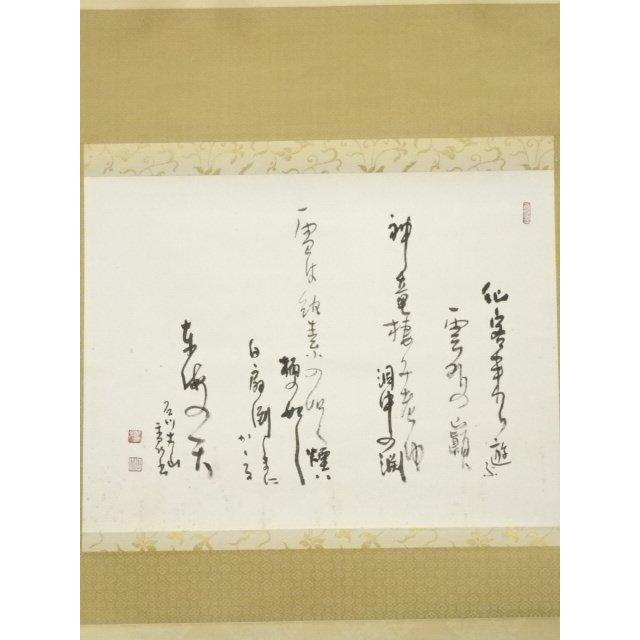 仙客来り遊ぶ
雲外の巓
神竜棲み老ゆ
洞中の淵
雪は紈素の如く煙は
柄の如し
白扇倒まに
かかる
東海の天
石川丈山